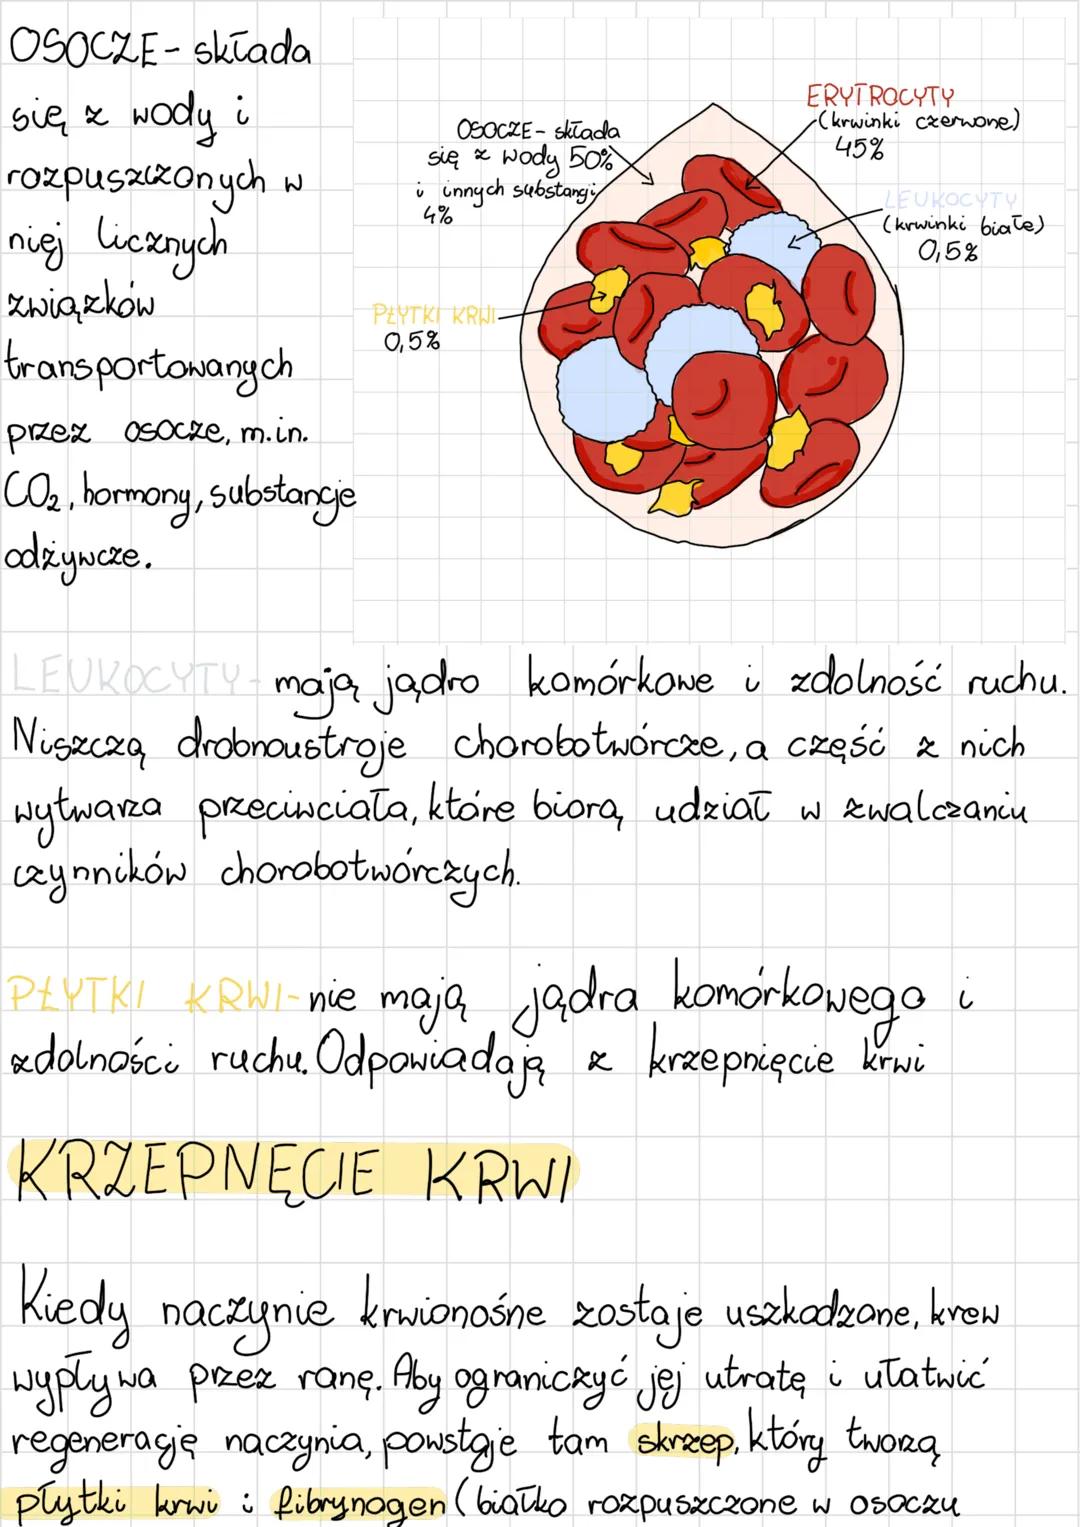 OSOCZE- składa
się z wody i
rozpuszczonych w
niej licznych
związków
transportowanych
przez osocze, m.in.
CO₂, hormony, substancje
odżywcze.
OSOCZE- składa
się z wody 50%
i innych substancji
4%
ERYTROCYTY
(krwinki czerwone)
45%
LEUKOCYTY
(krwinki białe)
0,5%
PŁYTKI KRWI
0,5%
LEUKOCYTY- mają jądro komórkowe i zdolność ruchu.
Niszczą drobnoustroje chorobotwórcze, a część z nich
wytwarza przeciwciała, które biorą udział w zwalczaniu
czynników chorobotwórczych.
PŁYTKI KRWI- nie mają jądra komórkowego i
zdolności ruchu. Odpowiadają z krzepnięcie krwi
KRZEPNĘCIE KRWI
Kiedy naczynie krwionośne zostaje uszkodzone, krew
wypływa przez ranę. Aby ograniczyć jej utratę i ułatwić
regenerację naczynia, powstaje tam skrzep, który tworzą
płytki krwi i fibrynogen (białko rozpuszczone w osoczu